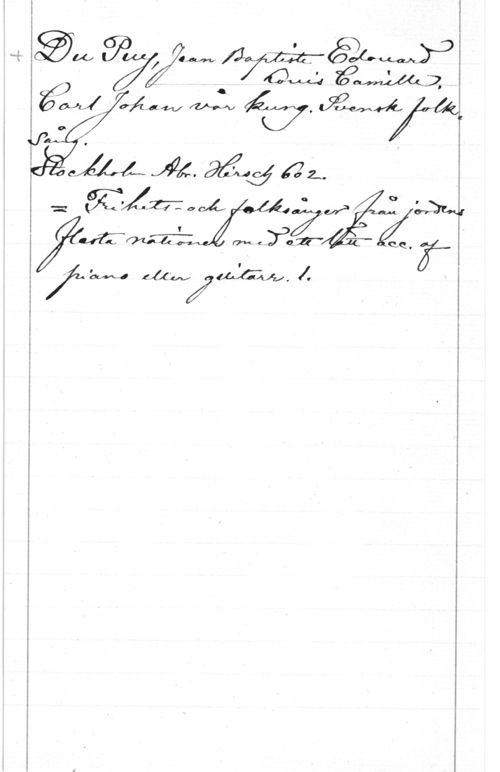 + Du Puy, Jean Baptiste Edouard
Louis Camille.
Carl Johan vår kung. Svensk folk-
sång.
Stockholm Abr. Hirsch 602.
= Frihets- och folksånger från jordens
flesta nationer med ett lätt acc. af
piano eller guitarr. 1.